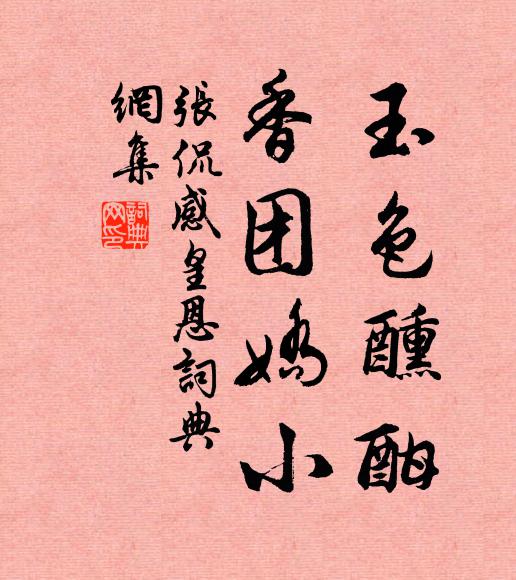 玉色醺酣
香团娇小
張侃感皇恩詞典
網集
詞典
网印